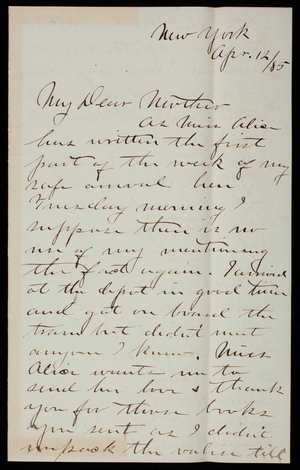 New York
Apr. 12/85
My Dear Mother
As Miss Alice
has written the first
part of the week of my
safe arrival here
Tuesday morning I
suppose there is no
use of my mentioning
the fact again. I arrived
at the depot in good time
and got on board the
train but didn't meet
anyone I knew. Miss
Alice wants me to
send her love & thank
you for those books
you sent as I didn't
unpack the valise till